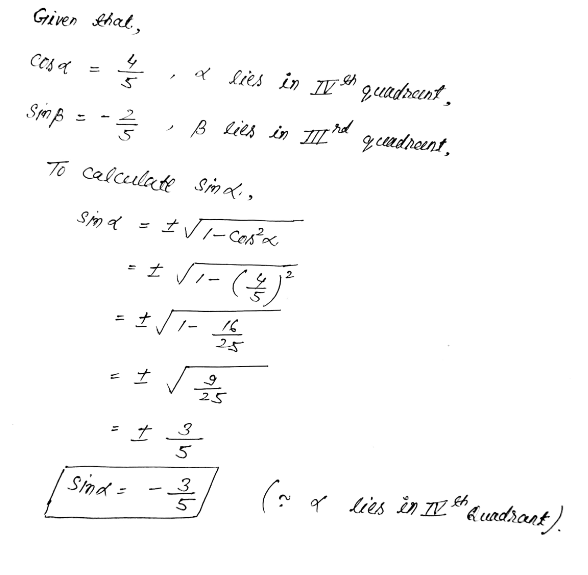 Given that,
cos α = 4/5 , α lies in IV th quadrant,
sin β = - 2/5 , β lies in III rd quadrant,
To calculate sin α,
sin α = ± √(1 - cos² α)
= ± √(1 - (4/5)²)
= ± √(1 - 16/25)
= ± √(9/25)
= ± 3/5
sin α = - 3/5 (∵ α lies in IV th Quadrant).